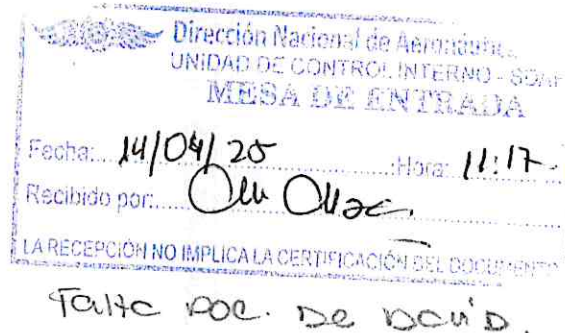 Dirección Nacional de
UNIDAD DE CONTROL INTERNO -
MESA DE ENTRADA
Fecha: 14/04/25 Hora: 11:17.
Recibido por:
LA RECEPCIÓN NO IMPLICA LA CERTIFICACIÓN DEL DOCUMENTO
Falta DOC. De